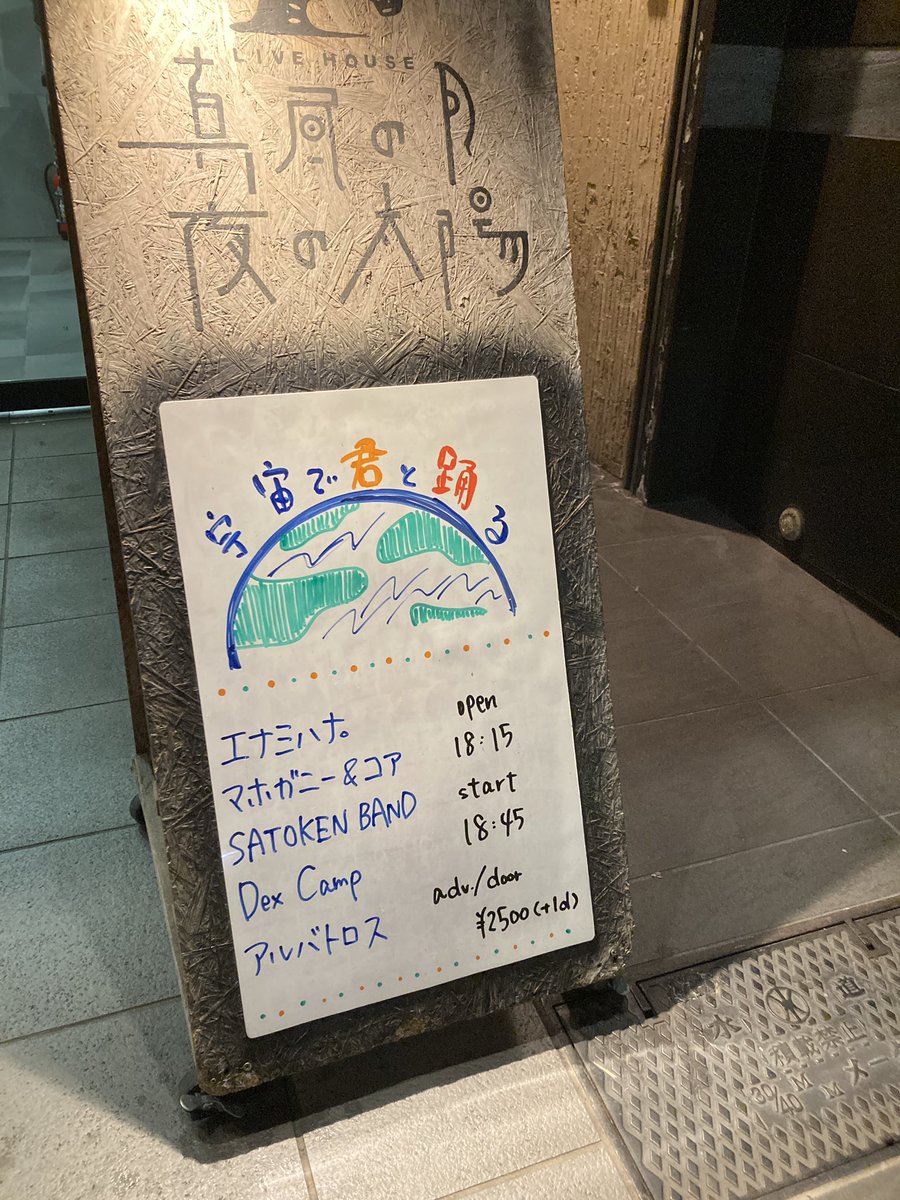 LIVE HOUSE
真昼の月
夜の太陽
宇宙で君と踊る
エナミハナ。
マホガニー&コア
SATOKEN BAND
Dex Camp
アルバトロス
open
18:15
start
18:45
adv./door
¥2500(+1d)
水 道